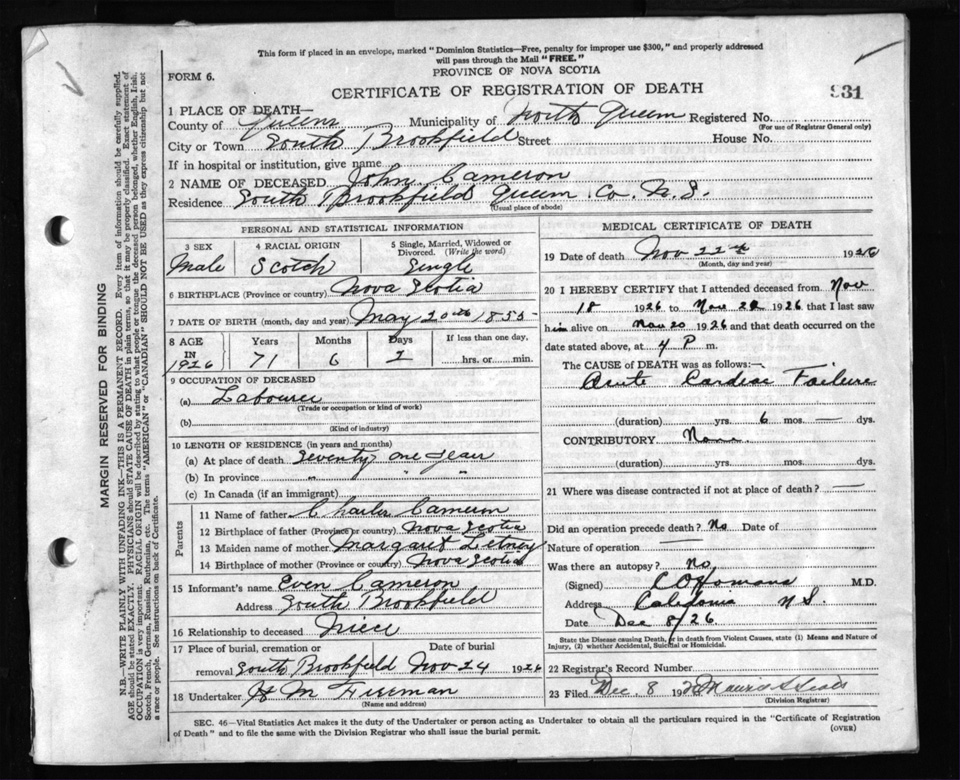 This form if placed in an envelope, marked "Dominion Statistics—Free, penalty for improper use $300," and properly addressed
will pass through the Mail "FREE."
FORM 6.
PROVINCE OF NOVA SCOTIA
CERTIFICATE OF REGISTRATION OF DEATH
931
1 PLACE OF DEATH—
County of Queens Municipality of North Queens Registered No.
(For use of Registrar General only)
City or Town South Brookfield Street House No.
If in hospital or institution, give name
2 NAME OF DECEASED John Cameron
Residence South Brookfield Queens Co. N.S.
(Usual place of abode)
PERSONAL AND STATISTICAL INFORMATION
3 SEX 4 RACIAL ORIGIN 5 Single, Married, Widowed or
Divorced. (Write the word)
Male Scotch Single
6 BIRTHPLACE (Province or country) Nova Scotia
7 DATE OF BIRTH (month, day and year) May 20th 1855
8 AGE Years Months Days If less than one day,
IN
1926 71 6 2 hrs. or min.
9 OCCUPATION OF DECEASED
(a) Labourer
(Trade or occupation or kind of work)
(b)
(Kind of industry)
10 LENGTH OF RESIDENCE (in years and months)
(a) At place of death Seventy one Years
(b) In province " " "
(c) In Canada (if an immigrant)
Parents
11 Name of father Charles Cameron
12 Birthplace of father (Province or country) Nova Scotia
13 Maiden name of mother Margaret
14 Birthplace of mother (Province or country) Nova Scotia
15 Informant's name Even Cameron
Address South Brookfield
16 Relationship to deceased Niece
17 Place of burial, cremation or Date of burial
removal South Brookfield Nov 24 1926
18 Undertaker H M Freeman
(Name and address)
MEDICAL CERTIFICATE OF DEATH
19 Date of death Nov 22nd 1926
(Month, day and year)
20 I HEREBY CERTIFY that I attended deceased from Nov
18 1926 to Nov 22 1926 that I last saw
him alive on Nov 20 1926 and that death occurred on the
date stated above, at 4 P m.
The CAUSE of DEATH was as follows:—
Acute Cardiac Failure
(duration) yrs. 6 mos. — dys.
CONTRIBUTORY None
(duration) yrs. mos. dys.
21 Where was disease contracted if not at place of death? —
Did an operation precede death? No Date of
Nature of operation —
Was there an autopsy? No
(Signed) M.D.
Address Caledonia N S.
Date Dec 8/26.
State the Disease causing Death, or in death from Violent Causes, state (1) Means and Nature of
Injury, (2) whether Accidental, Suicidal or Homicidal.
22 Registrar's Record Number
23 Filed Dec. 8 192
(Division Registrar)
SEC. 46—Vital Statistics Act makes it the duty of the Undertaker or person acting as Undertaker to obtain all the particulars required in the "Certificate of Registration
of Death" and to file the same with the Division Registrar who shall issue the burial permit.
(OVER)
MARGIN RESERVED FOR BINDING
N.B.—WRITE PLAINLY WITH UNFADING INK—THIS IS A PERMANENT RECORD. Every item of information should be carefully supplied.
AGE should be stated EXACTLY. PHYSICIANS should STATE CAUSE OF DEATH in plain terms, so that it may be properly classified. Exact statement of
OCCUPATION is very important. RACIAL ORIGIN will be described by stating to what people or tongue the deceased person belonged, whether English, Irish,
Scotch, French, German, Russian, Ruthenian, etc. The terms "AMERICAN" or "CANADIAN" SHOULD NOT BE USED as they express citizenship but not
a race or people. See instructions on back of Certificate.